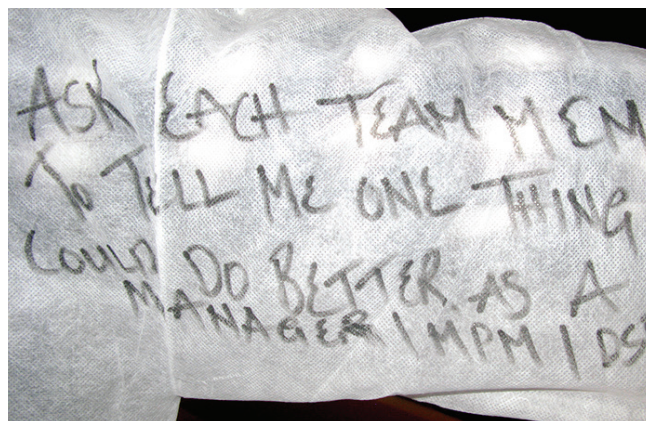 ASK EACH TEAM MEM
TO TELL ME ONE THING
COULD DO BETTER AS A
MANAGER / MPM / DS